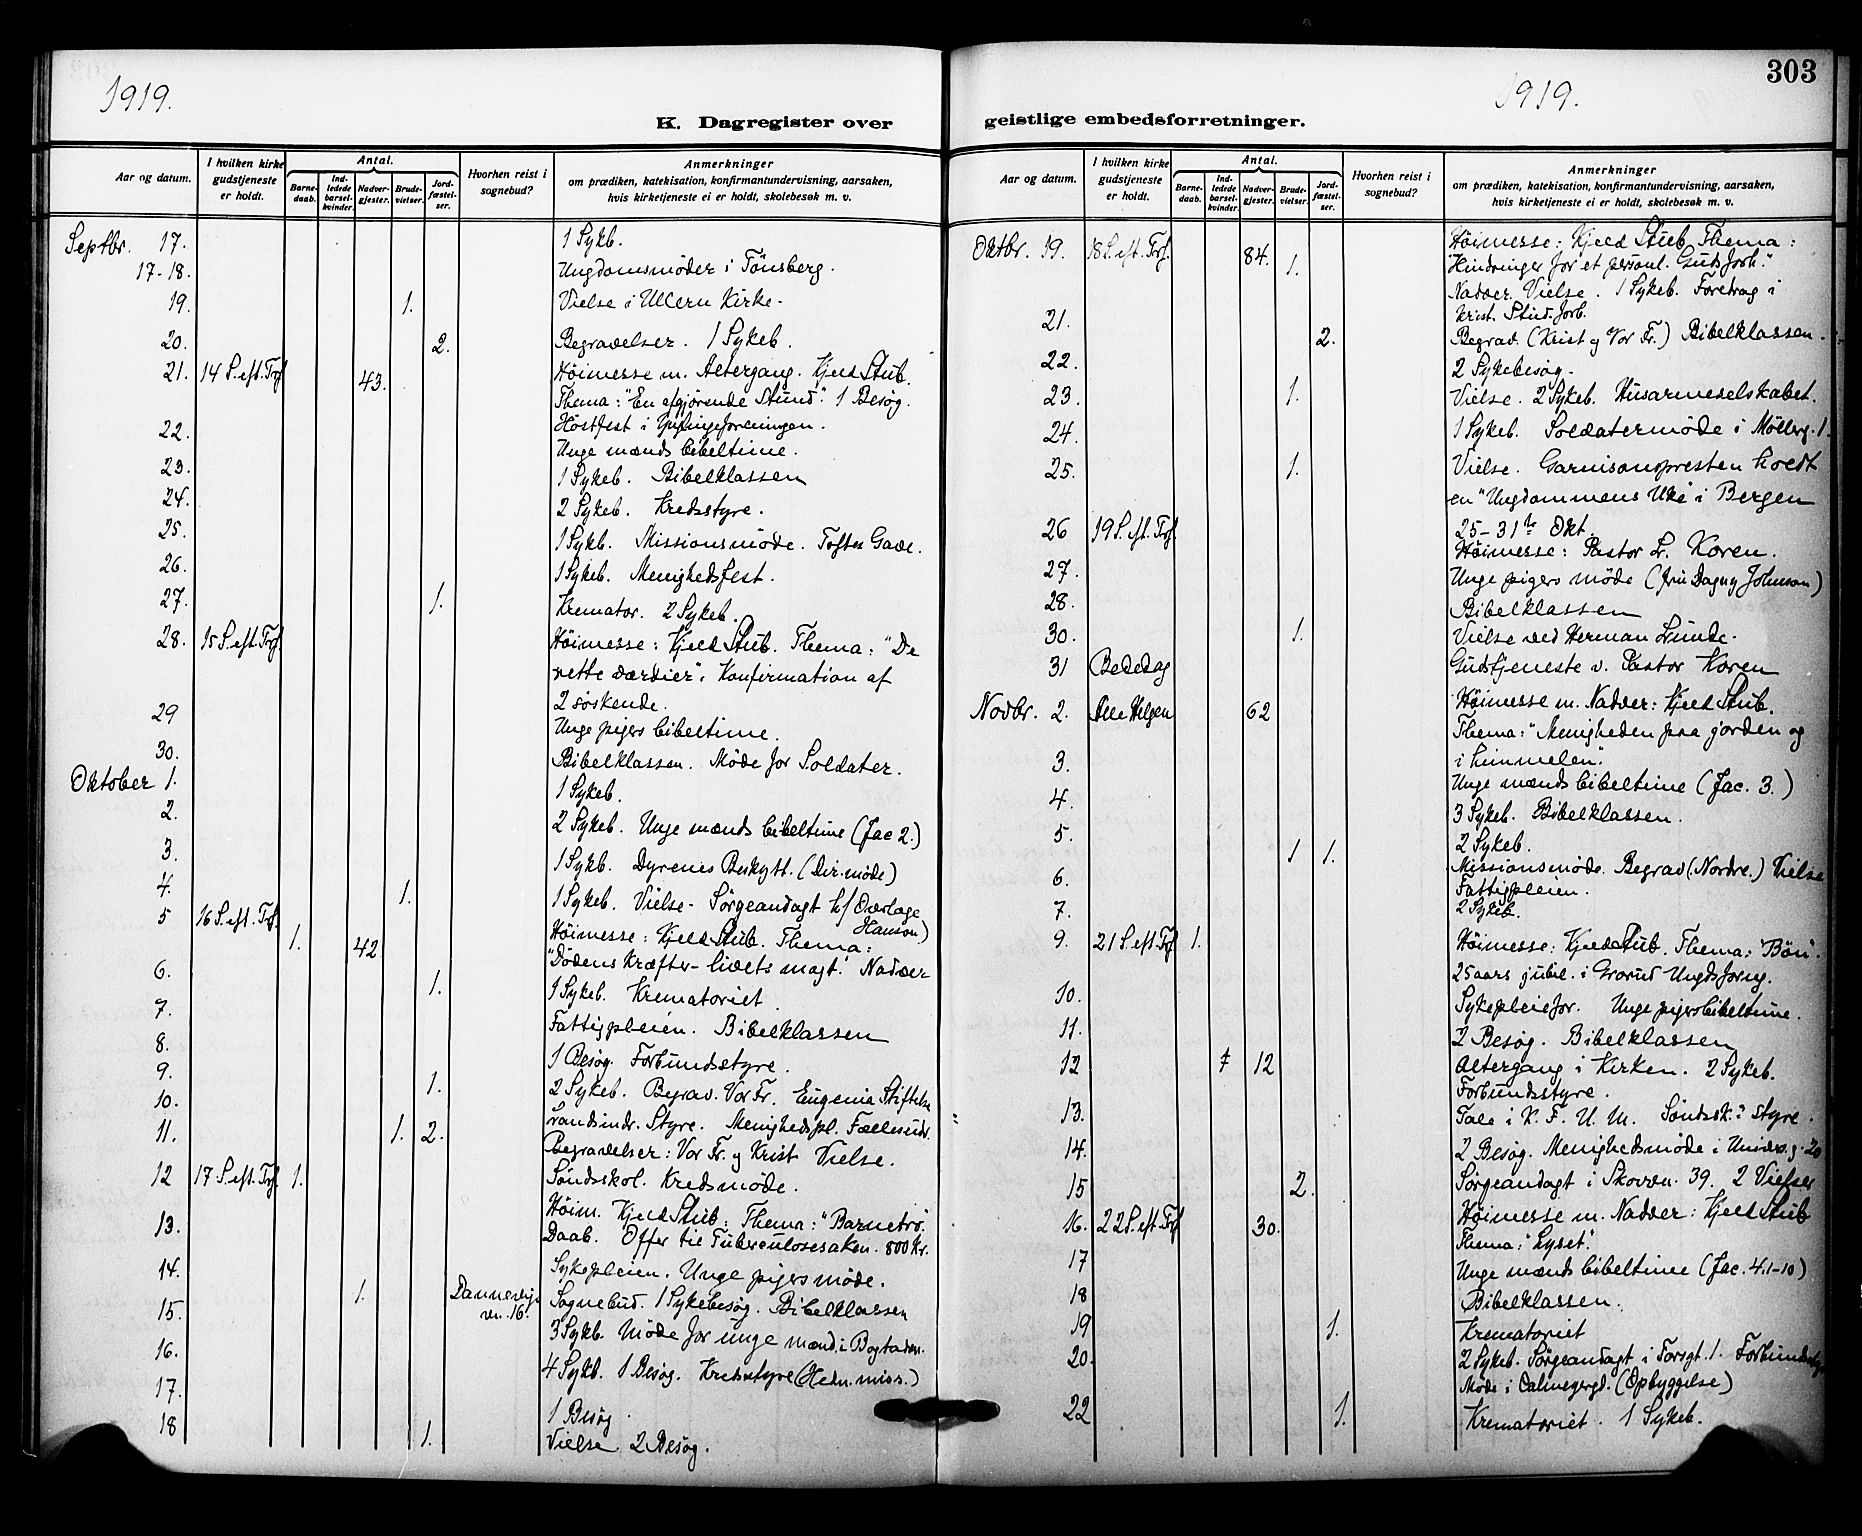 1919.
K. Dagregister over
Aar og datum.
I hvilken kirke gudstjeneste er holdt.
Antal.
Barnedaab.
Indledede barselkvinder.
Nadvergjester.
Brudevielser.
Jordfæstelser.
Hvorhen reist i sognebud?
Anmerkninger
om prædiken, katekisation, konfirmantundervisning, aarsaken,
hvis kirketjeneste ei er holdt, skolebesøk m. v.
Septbr. 17. 1 Sykb.
17-18. Ungdomsmøder i Tönsberg.
19. 1. Vielse i Ullern Kirke.
20. 2. Begravelser. 1 Sykeb.
21. 14 S. eft. Trf. 43. Höimesse m. Altergang. Kjeld Stub.
Thema: "En afgjørende Stund". 1 Besøg.
Höstfest i Ynglingeforeningen.
22. Unge mænds bibeltime.
23. 1 Sykeb. Bibelklassen
24. 2 Sykeb. Kredsstyre.
25. 1 Sykb. Missionsmøde. Toftes Gade.
26. 1 Sykeb. Menighedsfest.
27. 1. Kremator. 2 Sykeb.
28. 15 S. eft. Trf. Höimesse: Kjeld Stub. Thema: "De
rette værdier". Konfirmation af
2 söskende.
29 Unge pigers bibeltime.
30. Bibelklassen. Møde for Soldater.
Oktober 1. 1 Sykeb.
2. 2 Sykeb. Unge mænds bibeltime (Jac 2.)
3. 1 Sykb. Dyrenes Beskytt. (Dir. møde)
4. 1. 1 Sykeb. Vielse - Sørgeandagt h/ Overlæge
Hanson)
5 16 S. eft. Trf. 1. 42 Höimesse: Kjeld Stub. Thema:
"Dødens Kræfter - livets magt". Nadver
6. 1. 1 Sykeb. Krematoriet
7. Fattigpleien. Bibelklassen
8. 1 Besøg. Forbundsstyre.
9. 1. 2 Sykeb. Begrav. Vor Fr. Eugenia Stiftelse
10. Landsindr. Styre. Menighedspl. Fællesudv.
11. 1. 2. Begravelser: Vor Fr. og Krist Vielse.
Söndsskol. Kredsmøde.
12 17 S. eft. Trf. 1. Höim. Kjeld Stub: Thema: "Barnetro".
Daab. Offer til Tuberculosesaken. 800 Kr.
13. Sykepleien. Unge pigers møde.
14. 1. Dannevigs vn. 16. Sognebud. 1 Sykebesøg. Bibelklassen
15. 3 Sykb. Møde for unge mænd i Bogstadvn.
16. 4 Sykb. 1 Besøg. Kredsstyre (Hedn. miss.)
17. 1 Besøg
18 1. Vielse 2 Besøg.
1919.
303
geistlige embedsforretninger.
Aar og datum.
I hvilken kirke gudstjeneste er holdt.
Antal.
Barnedaab.
Indledede barselkvinder.
Nadvergjester.
Brudevielser.
Jordfæstelser.
Hvorhen reist i sognebud?
Anmerkninger
om prædiken, katekisation, konfirmantundervisning, aarsaken,
hvis kirketjeneste ei er holdt, skolebesøk m. v.
Oktbr. 19. 18 S. eft. Trf. 84. 1. Höimesse: Kjeld Stub Thema:
"Hindringer for et personl. Gudsforh."
Nadver. Vielse. 1 Sykeb. Foredrag i
Krist. Stud. forb.
21. 2. Begrav. (Krist og Vor Fr.) Bibelklassen.
22. 2 Sykebesøg.
23. 1. Vielse. 2 Sykeb. Husarmeselskabet.
24. 1 Sykeb. Soldatermøde i Möllerg. 1.
25. 1. Vielse. Garnisonspresten holdt
en "Ungdommens Uke" i Bergen
25-31te Okt.
26 19 S. eft. Trf. Höimesse: Pastor L. Koren.
27. Unge pigers møde (frü Dagny Johnson)
28. Bibelklassen
30. 1. Vielse ved Herman Lunde.
31 Bededag Gudstjeneste v. Pastor Koren
Novbr. 2. Alle Helgen 62 Höimesse m. Nadver: Kjeld Stub.
Thema: "Menigheden paa jorden og
i himmelen".
3. Unge mænds bibeltime (Jac. 3.)
4. 3 Sykeb. Bibelklassen.
5. 2 Sykeb.
1 1. Missionsmøde. Begrav (Nordre.) Vielse
6. Fattigpleien.
7. 2 Sykeb.
9. 21 S. eft. Trf 1. Höimesse: Kjeld Stub. Thema: "Bön".
25 aars jubil. i Grorud Ungdsforng.
10. Sykepleiefor. Unge pigers bibeltime.
11. 2 Besøg. Bibelklassen
12 12 Altergang i Kirken. 2 Sykeb.
Forbundsstyre.
13. Tale i K. F. U. M. Söndssk. styre.
14. 2 Besøg. Menighedsmøde i Univers.g. 20
15 2. Sørgeandagt i Skovvn. 39. 2 Vielser
16. 22 S. eft. Trf 30. Höimesse m. Nadver: Kjeld Stub
Thema: "Lyset".
17 Unge mænds bibeltime (Jac. 4.1-10)
18 Bibelklassen.
19 1. Krematoriet
20. 2 Sykeb. Sørgeandagt i 1. Forbundsst
Møde i Calmeyergd. (Opbyggelse)
22 1. Krematoriet. 1 Sykeb.